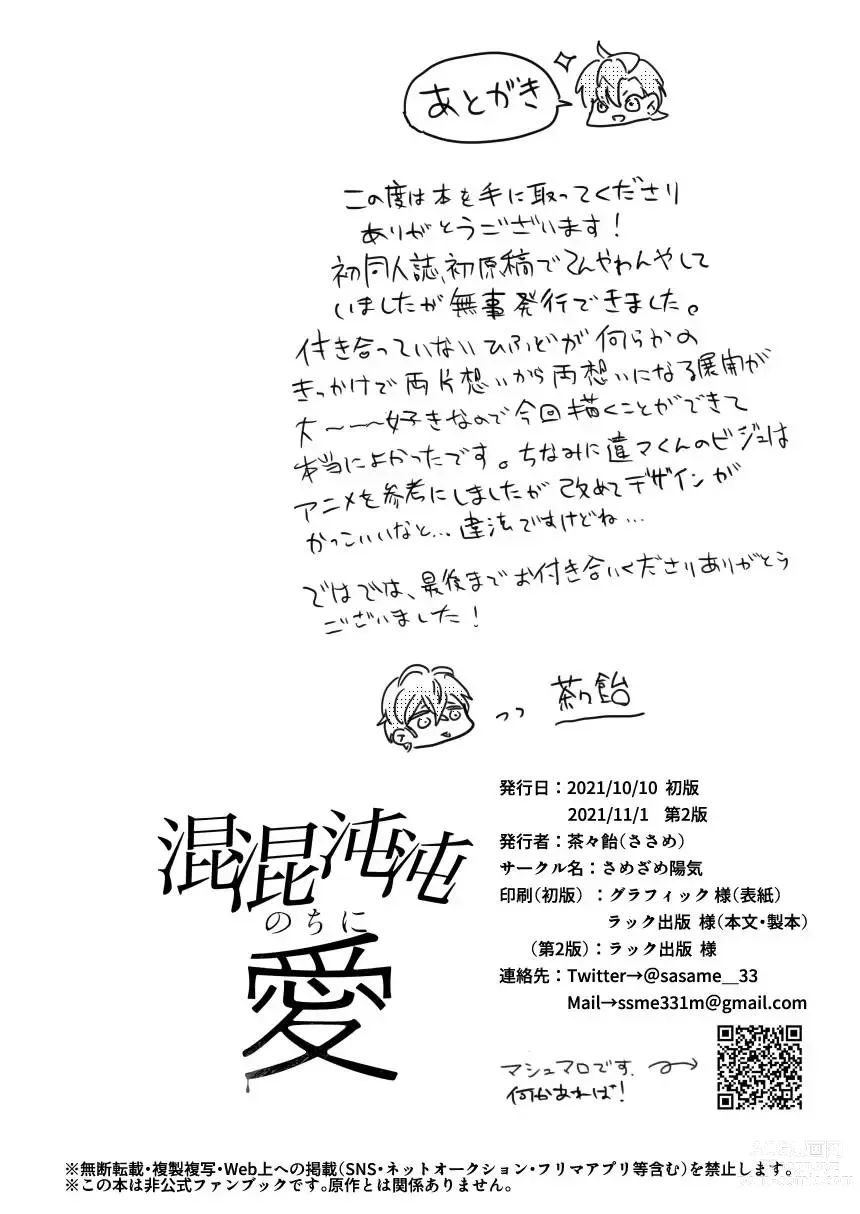 あとがき
この度は本を手に取ってくださり
ありがとうございます！
初同人誌、初原稿でてんやわんやして
いましたが無事発行できました。
付き合っていないひふどが何らかの
きっかけで両片想いから両想いになる展開が
大〜〜〜好きなので今回描くことができて
本当によかったです。ちなみに違マくんのビジュは
アニメを参考にしましたが改めてデザインが
かっこいいなと…違法ですけどね…
ではでは、最後までお付き合いくださりありがとう
ございました！
茶々飴
混混沌沌
のちに
愛
発行日：2021/10/10 初版
2021/11/1 第2版
発行者：茶々飴(ささめ)
サークル名：さめざめ陽気
印刷(初版) ：グラフィック 様(表紙)
ラック出版 様(本文・製本)
(第2版)：ラック出版 様
連絡先：Twitter→@sasame__33
Mail→ssme331m@gmail.com
マシュマロです。
何かあれば！
※無断転載・複製複写・Web上への掲載(SNS・ネットオークション・フリマアプリ等含む)を禁止します。
※この本は非公式ファンブックです。原作とは関係ありません。